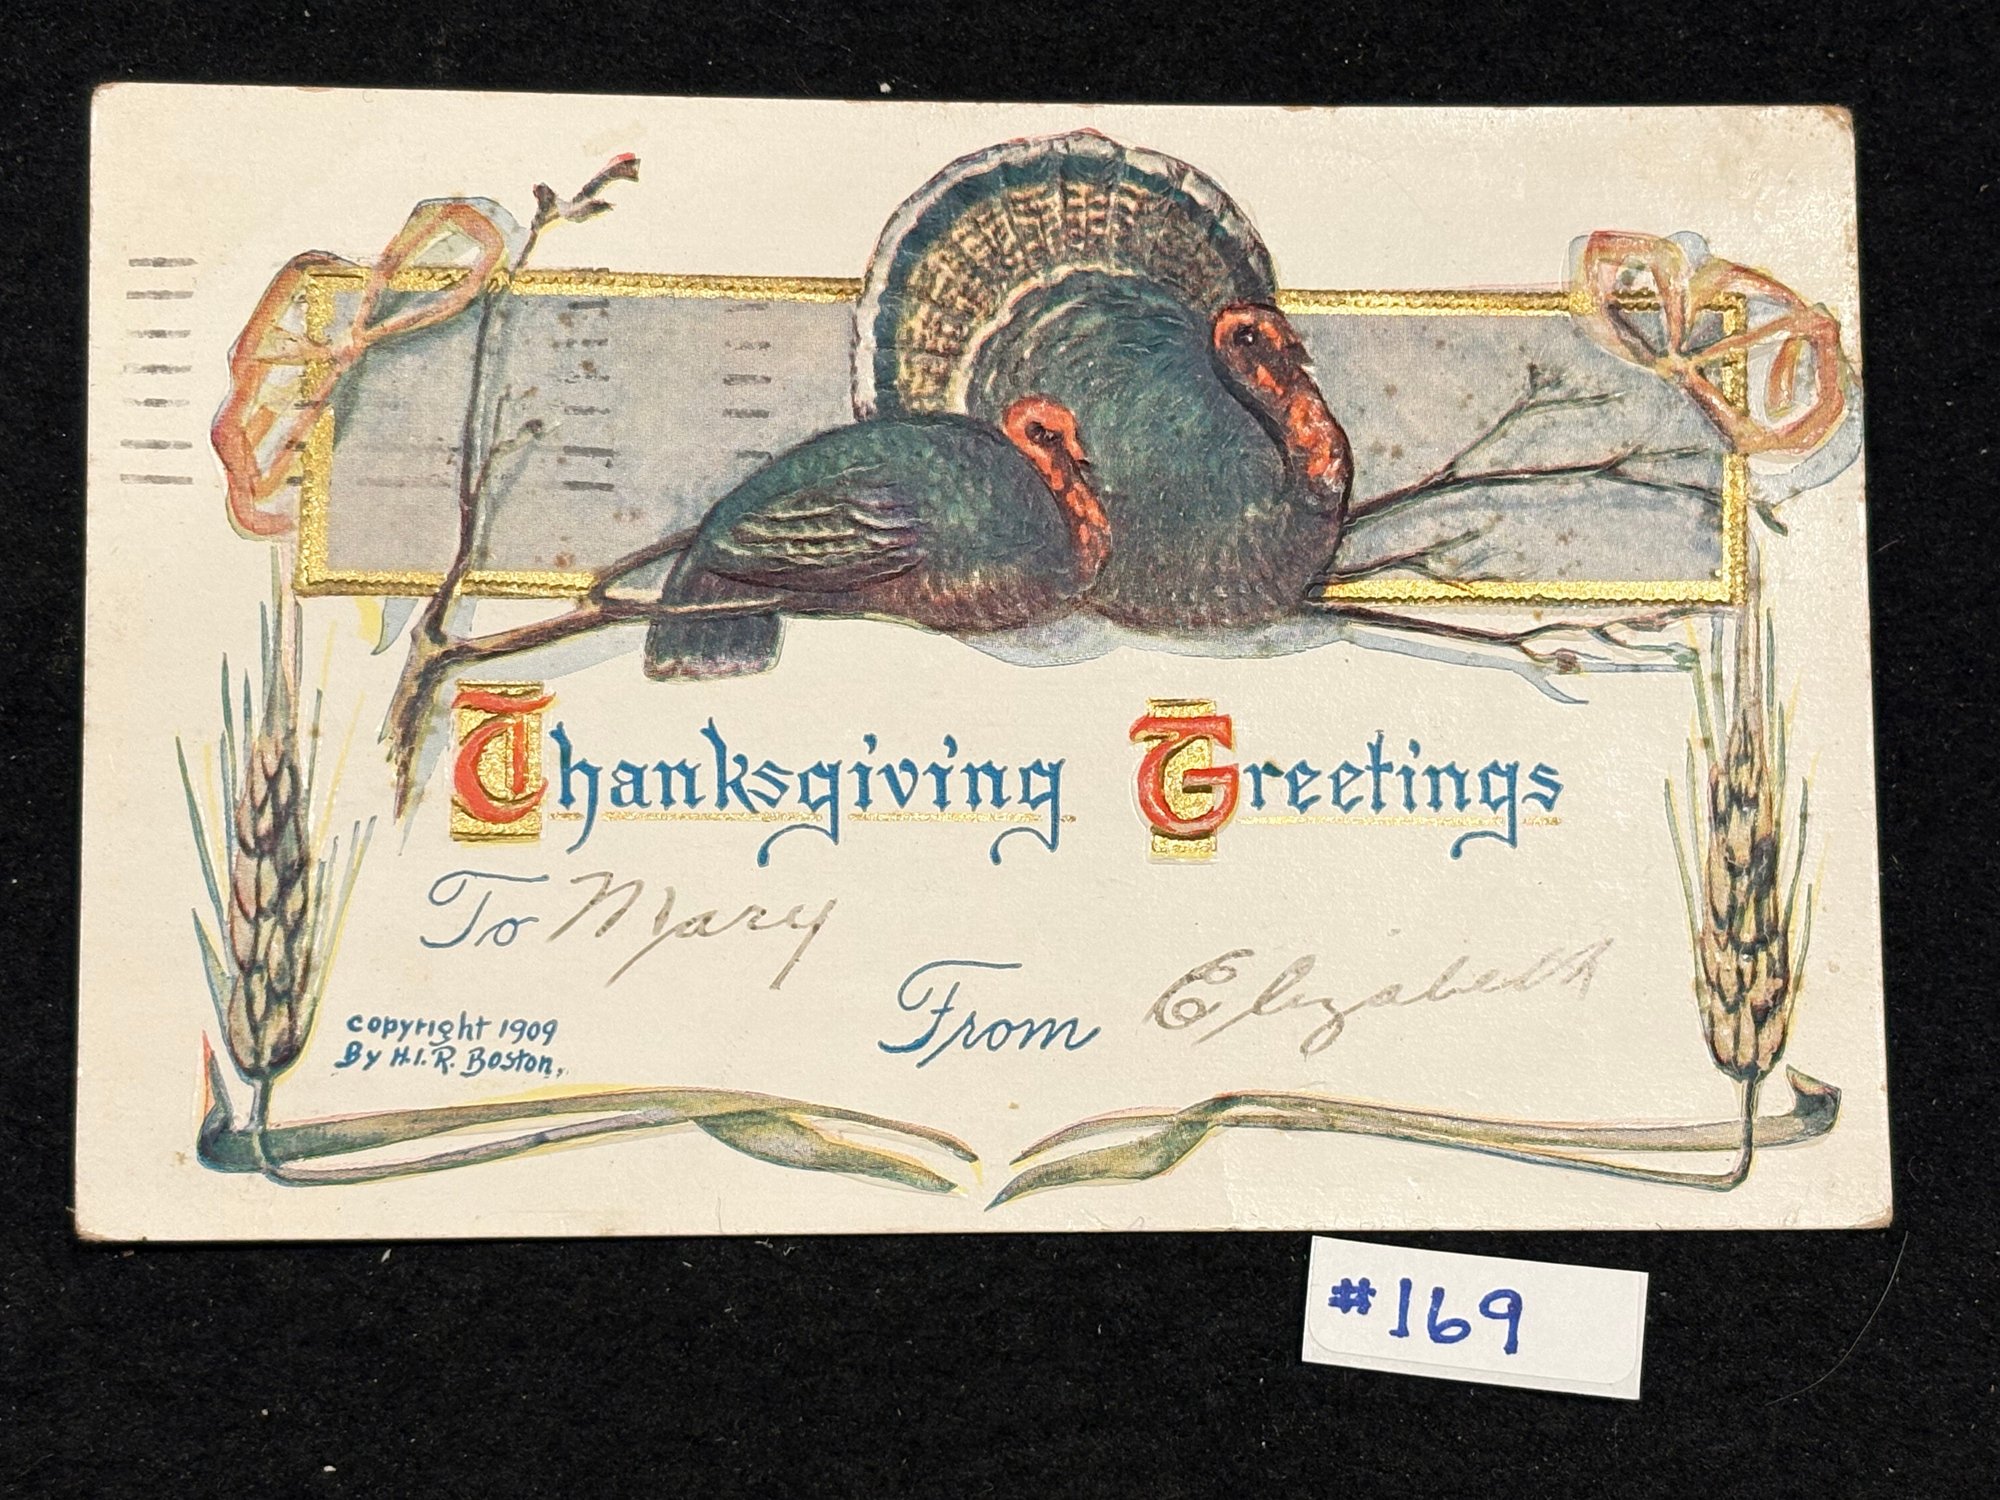 Thanksgiving Greetings
To Mary
From Elizabeth
copyright 1909
By H.I.R. Boston,
#169